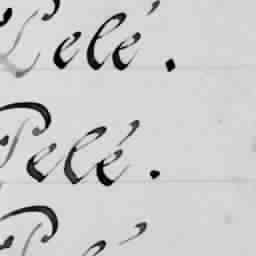 Lelé.
Pelé.